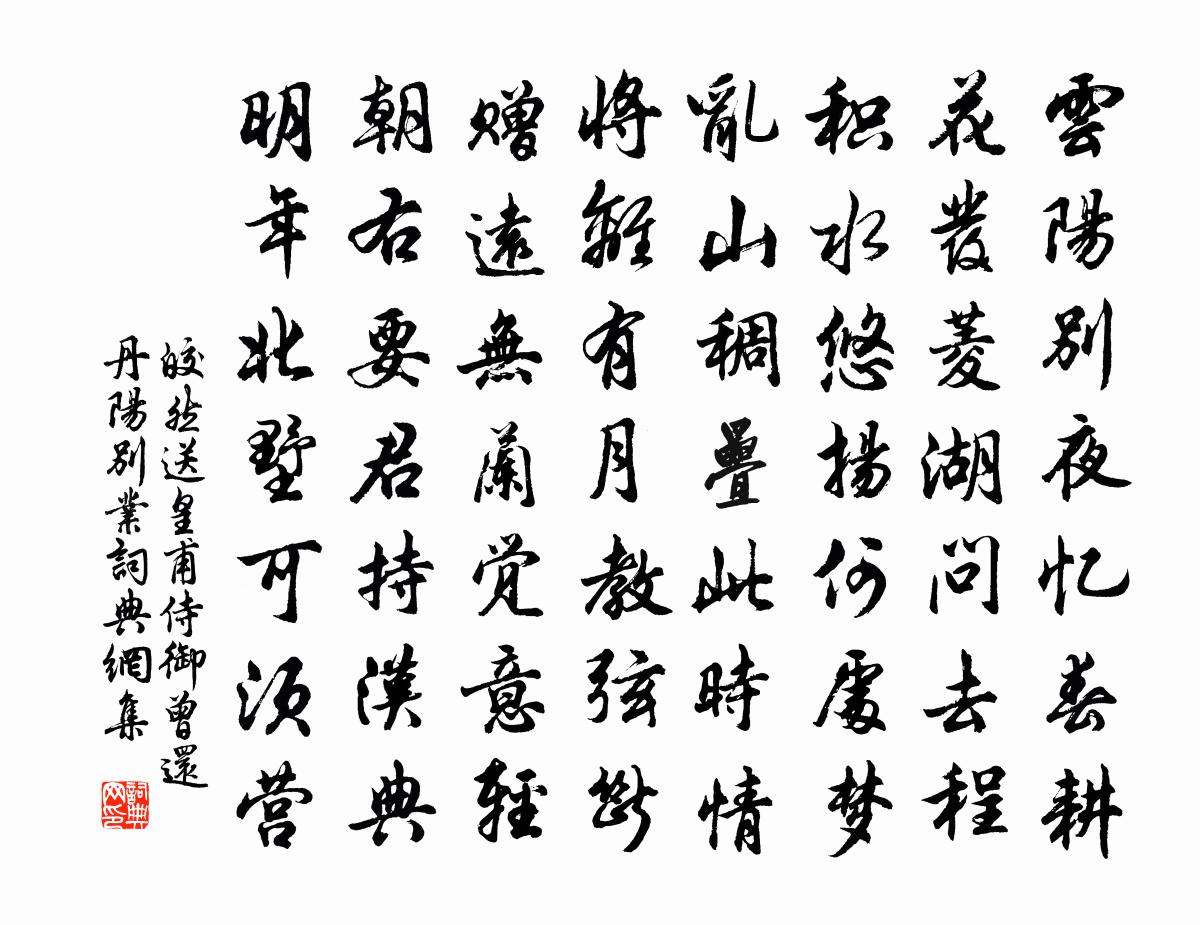 雲陽別夜忆春耕
花發菱湖問去程
积水悠揚何處梦
亂山稠疊此時情
将離有月教弦斷
赠遠無蘭觉意輕
朝右要君持漢典
明年北墅可须营
皎然送皇甫侍御曾還
丹陽别業詞典網集
詞典网印